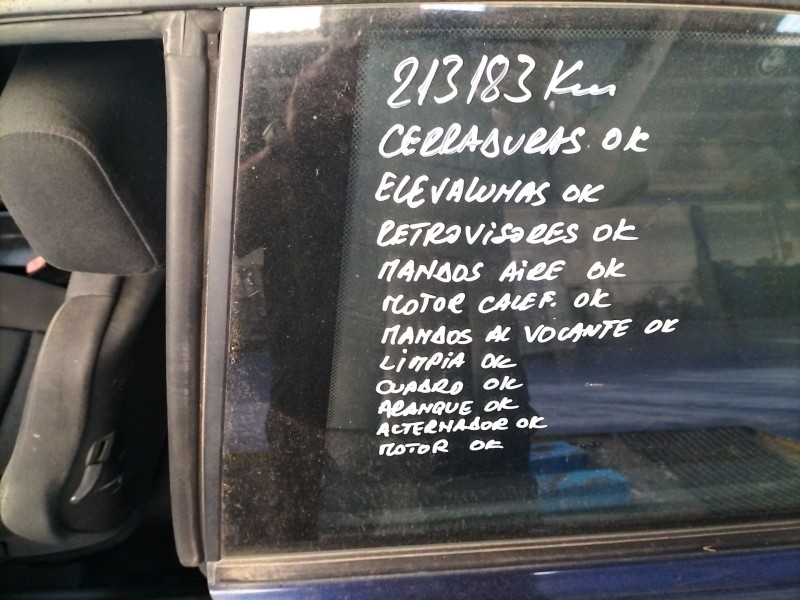 213183 Km
CERRADURAS OK
ELEVALUNAS OK
RETROVISORES OK
MANDOS AIRE OK
MOTOR CALEF. OK
MANDOS AL VOLANTE OK
LIMPIA OK
CUADRO OK
ARANQUE OK
ALTERNADOR OK
MOTOR OK